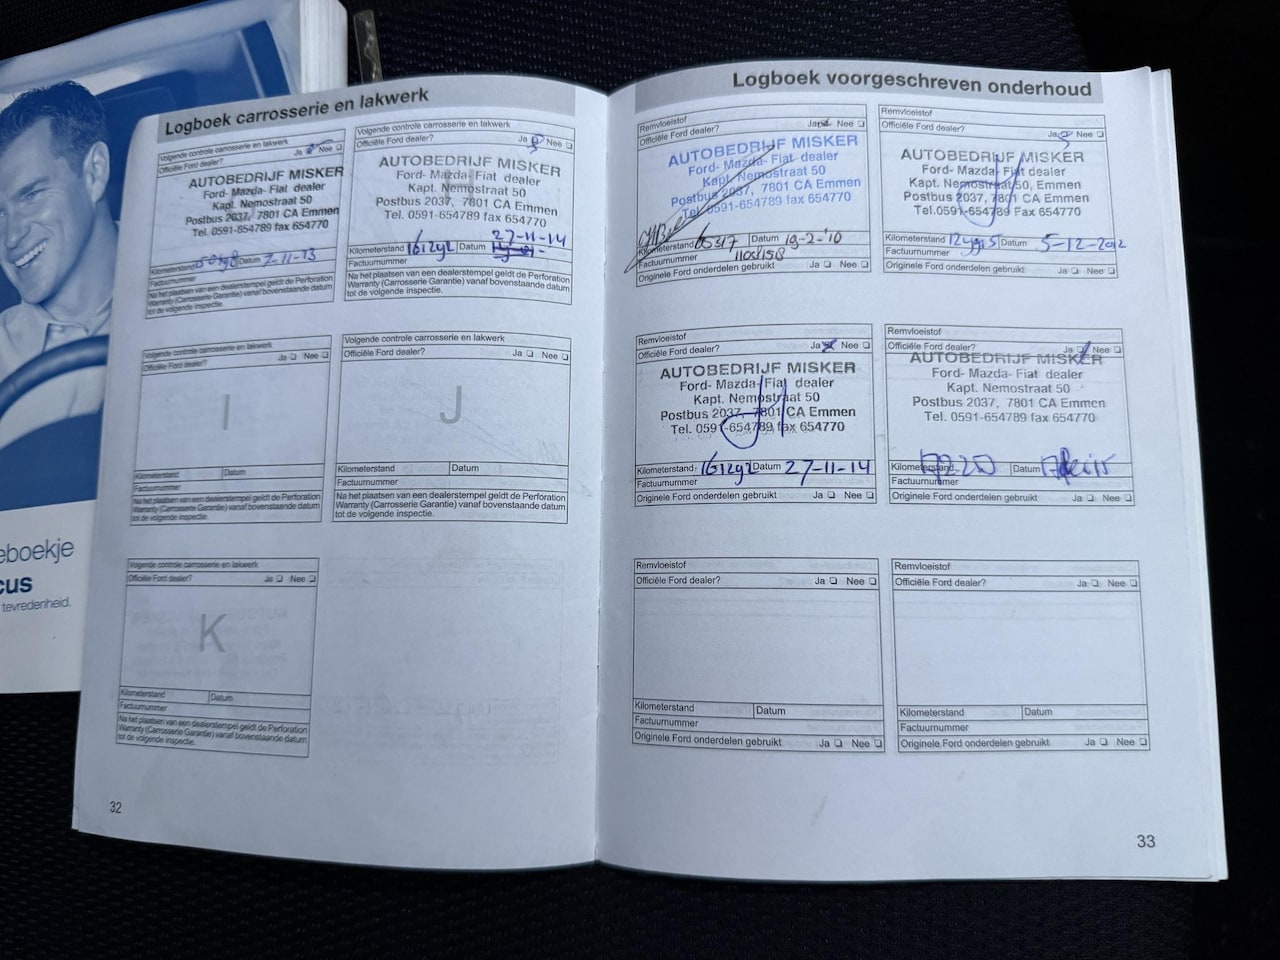 eboekje
cus
tevredenheid.
Logboek carrosserie en lakwerk
Volgende controle carrosserie en lakwerk
Officiële Ford dealer? Ja Nee
AUTOBEDRIJF MISKER
Ford- Mazda- Fiat dealer
Kapt. Nemostraat 50
Postbus 2037, 7801 CA Emmen
Tel. 0591-654789 fax 654770
Kilometerstand Datum 7-11-13
Factuurnummer
Na het plaatsen van een dealerstempel geldt de Perforation
Warranty (Carrosserie Garantie) vanaf bovenstaande datum
tot de volgende inspectie.
Volgende controle carrosserie en lakwerk
Officiële Ford dealer? Ja Nee
H
AUTOBEDRIJF MISKER
Ford- Mazda- Fiat dealer
Kapt. Nemostraat 50
Postbus 2037, 7801 CA Emmen
Tel. 0591-654789 fax 654770
27-11-14
Kilometerstand 161292 Datum
Factuurnummer
Na het plaatsen van een dealerstempel geldt de Perforation
Warranty (Carrosserie Garantie) vanaf bovenstaande datum
tot de volgende inspectie.
Volgende controle carrosserie en lakwerk
Officiële Ford dealer? Ja Nee
I
Kilometerstand Datum
Factuurnummer
Na het plaatsen van een dealerstempel geldt de Perforation
Warranty (Carrosserie Garantie) vanaf bovenstaande datum
tot de volgende inspectie.
Volgende controle carrosserie en lakwerk
Officiële Ford dealer? Ja Nee
J
Kilometerstand Datum
Factuurnummer
Na het plaatsen van een dealerstempel geldt de Perforation
Warranty (Carrosserie Garantie) vanaf bovenstaande datum
tot de volgende inspectie.
Volgende controle carrosserie en lakwerk
Officiële Ford dealer? Ja Nee
K
Kilometerstand Datum
Factuurnummer
Na het plaatsen van een dealerstempel geldt de Perforation
Warranty (Carrosserie Garantie) vanaf bovenstaande datum
tot de volgende inspectie.
32
Logboek voorgeschreven onderhoud
Remvloeistof
Officiële Ford dealer? Ja Nee
AUTOBEDRIJF MISKER
Ford- Mazda- Fiat dealer
Kapt. Nemostraat 50
Postbus 2037, 7801 CA Emmen
Tel. 0591-654789 fax 654770
Kilometerstand 65317 Datum 19-2-'10
Factuurnummer 1108158
Originele Ford onderdelen gebruikt Ja Nee
Remvloeistof
Officiële Ford dealer? Ja Nee
AUTOBEDRIJF MISKER
Ford- Mazda- Fiat dealer
Kapt. Nemostraat 50, Emmen
Postbus 2037, 7801 CA Emmen
Tel.0591-654789 fax 654770
Kilometerstand Datum 5-12-2012
Factuurnummer
Originele Ford onderdelen gebruikt Ja Nee
Remvloeistof
Officiële Ford dealer? Ja Nee
AUTOBEDRIJF MISKER
Ford- Mazda- Fiat dealer
Kapt. Nemostraat 50
Postbus 2037, 7801 CA Emmen
Tel. 0591-654789 fax 654770
Kilometerstand 161292 Datum 27-11-14
Factuurnummer
Originele Ford onderdelen gebruikt Ja Nee
Remvloeistof
Officiële Ford dealer? Ja Nee
AUTOBEDRIJF MISKER
Ford- Mazda- Fiat dealer
Kapt. Nemostraat 50
Postbus 2037, 7801 CA Emmen
Tel. 0591-654789 fax 654770
Kilometerstand Datum
Factuurnummer
Originele Ford onderdelen gebruikt Ja Nee
Remvloeistof
Officiële Ford dealer? Ja Nee
Kilometerstand Datum
Factuurnummer
Originele Ford onderdelen gebruikt Ja Nee
Remvloeistof
Officiële Ford dealer? Ja Nee
Kilometerstand Datum
Factuurnummer
Originele Ford onderdelen gebruikt Ja Nee
33